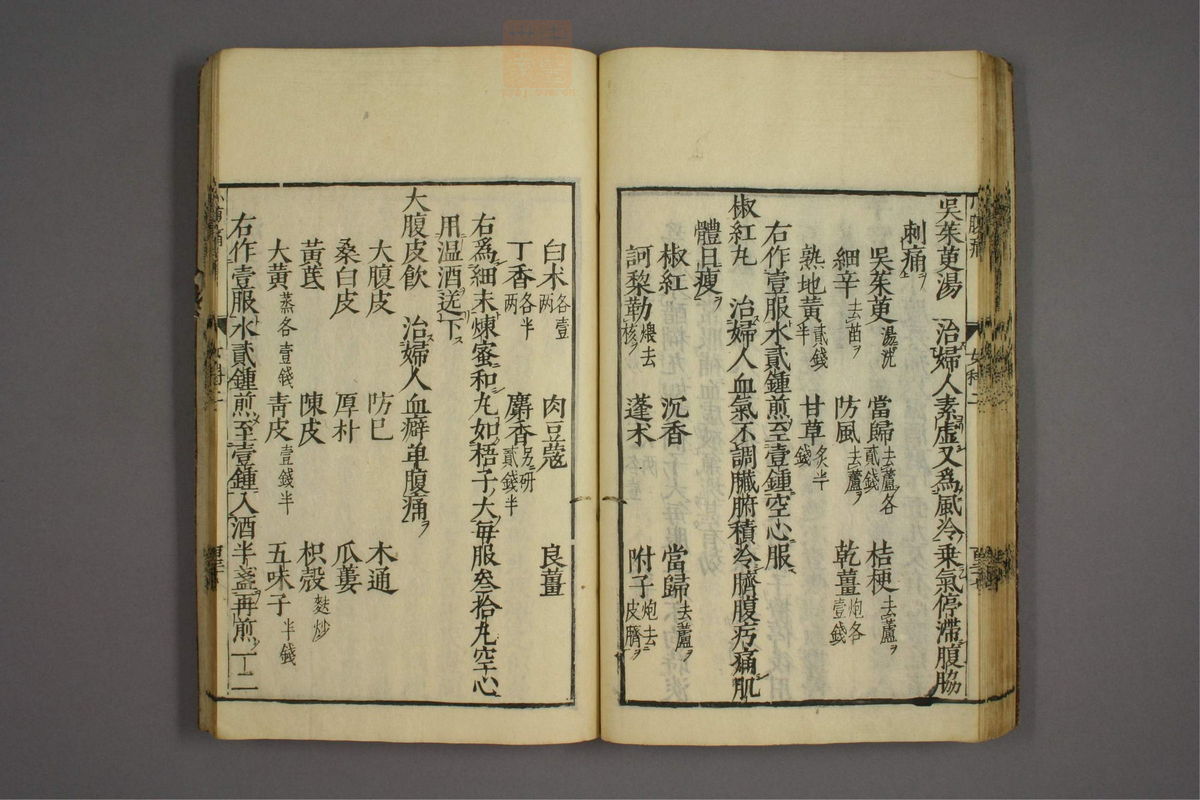 吳茱萸湯 治婦人素虛又爲風冷乘氣停滯腹脇
刺痛ヲ
吳茱萸湯洗 當歸去蘆各貳錢 桔梗去蘆ヲ
細辛去苗ヲ 防風去蘆ヲ 乾薑炮各壹錢
熟地黃貳錢半 甘草炙半錢
右作壹服水貳鍾煎至壹鍾空心服
椒紅丸 治婦人血氣不調臟腑積冷臍腹疞痛肌
體日瘦ヲ
椒紅 沉香 當歸去蘆ヲ
訶黎勒煨去核ヲ 蓬朮 附子炮去皮臍ヲ
白朮各壹兩 肉豆蔻 良薑
丁香各半兩 麝香另研貳錢半
右爲細末煉蜜和丸如梧子大每服叁拾丸空心
用温酒送下ス
大腹皮飲 治婦人血癖单腹痛ヲ
大腹皮 防已 木通
桑白皮 厚朴 瓜蔞
黃茋 陳皮 枳殼麩炒
大黃蒸各壹錢 靑皮壹錢半 五味子半錢
右作壹服水貳鍾煎至壹鍾入酒半盞再煎一二
女科二